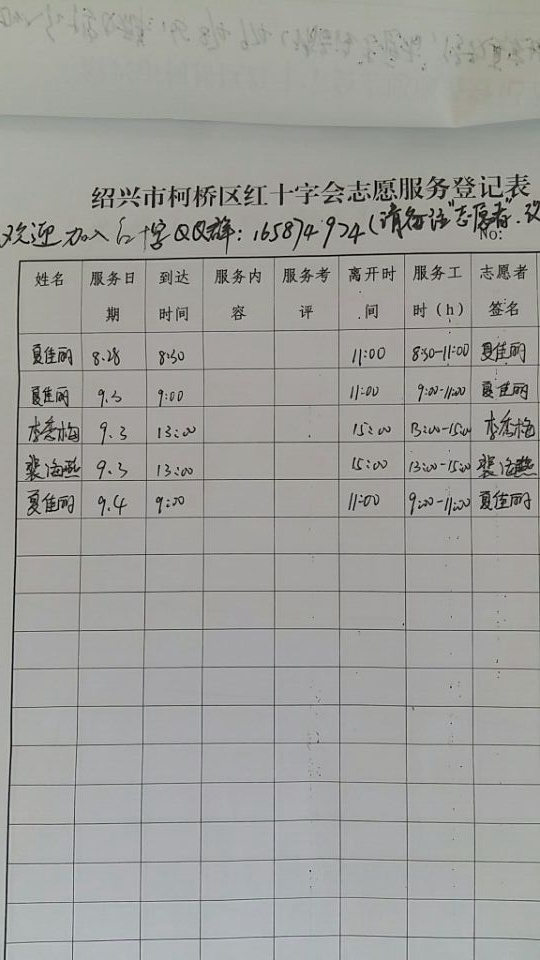 绍兴市柯桥区红十字会志愿服务登记表
欢迎加入红十字QQ群：165874924（请备注"志愿者"，
No:
姓名 服务日期 到达时间 服务内容 服务考评 离开时间 服务工时（h） 志愿者签名
夏佳丽 8.28 8:30 11:00 8:30-11:00 夏佳丽
夏佳丽 9.3 9:00 11:00 9:00-11:00 夏佳丽
李秀梅 9.3 13:00 15:00 13:00-15:00 李秀梅
裴海燕 9.3 13:00 15:00 13:00-15:00 裴海燕
夏佳丽 9.4 9:00 11:00 9:00-11:00 夏佳丽